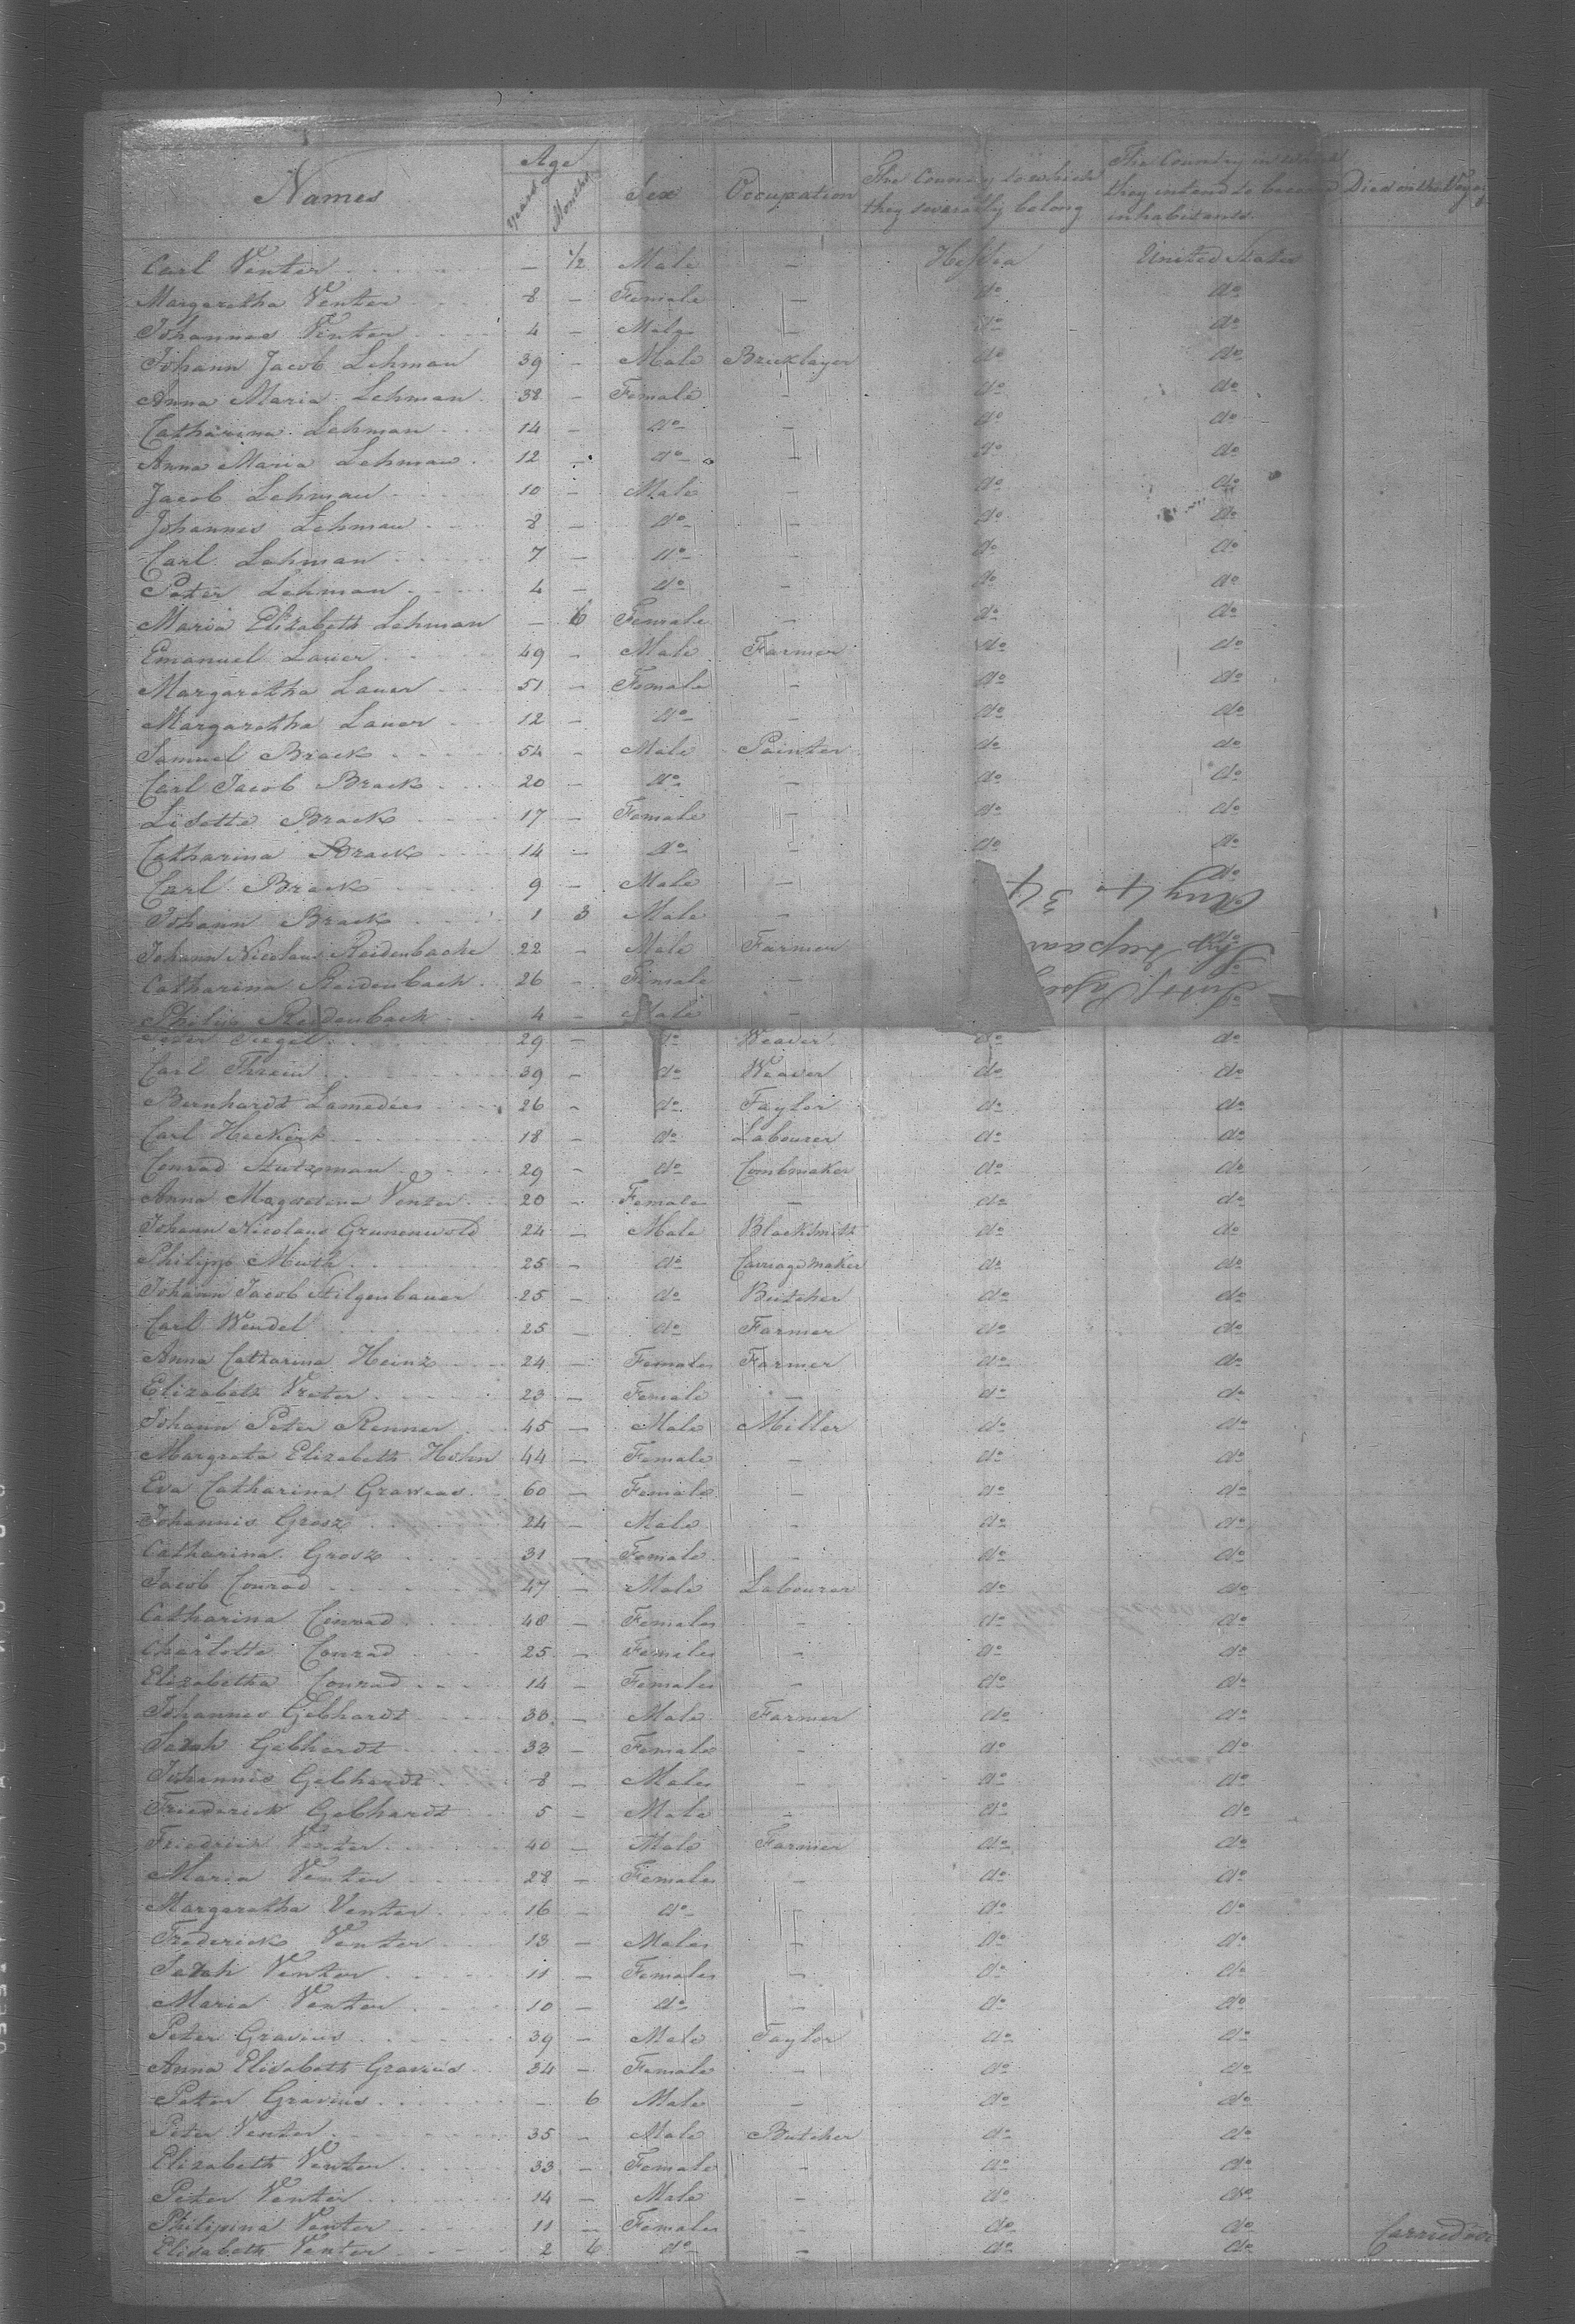 Names Age Years Months Sex Occupation The Country to which they severally belong The Country in which they intend to become inhabitants Died on the Voyage
Carl Venter — ½ Male — Hessia United States
Margaretha Venter 8 — Female — do do
Johannes Venter 4 — Male — do do
Johann Jacob Lehman 39 — Male Bricklayer do do
Anna Maria Lehman 38 — Female — do do
Catharina Lehman 14 — do — do do
Anna Maria Lehman 12 — do — do do
Jacob Lehman 10 — Male — do do
Johannes Lehman 8 — do — do do
Carl Lehman 7 — do — do do
Peter Lehman 4 — do — do do
Maria Elizabeth Lehman — 6 Female — do do
Emanuel Lauer 49 — Male Farmer do do
Margaretha Lauer 51 — Female — do do
Margaretha Lauer 12 — do — do do
Samuel Brack 54 — Male Painter do do
Carl Jacob Brack 20 — do — do do
Lisette Brack 17 — Female — do do
Catharina Brack 14 — do — do do
Carl Brack 9 — Male — do
Johann Brack 1 3 Male —
Aug 4 34
Johann Nicolaus Reidenbache 22 — Male Farmer
Catharina Reidenbach 26 — Female —
Philip Reidenbach 4 — Male —
Peter Siegel 29 — do Weaver do do
Carl Threin 39 — do Weaver do do
Bernhardt Lamedees 26 — do Taylor do do
Carl Heckert 18 — do Labourer do do
Conrad Stutzman 29 — do Combmaker do do
Anna Magdelena Venter 20 — Female — do do
Johann Nicolaus Grunenwold 24 — Male Blacksmith do do
Philipp Muth 25 — do Carriage maker do do
Johann Jacob Stilgenbauer 25 — do Butcher do do
Carl Wendel 25 — do Farmer do do
Anna Catharina Heinz 24 — Female Farmer do do
Elizabeth Vreter 23 — Female — do do
Johann Peter Renner 45 — Male Miller do do
Margreta Elizabeth Hohn 44 — Female — do do
Eva Catharina 60 — Female — do do
Johannis Grosz 24 — Male — do do
Catharina Grosz 31 — Female — do do
Jacob Conrad 47 — Male Labourer do do
Catharina Conrad 48 — Female — do do
Charlotte Conrad 25 — Female — do do
Elizabetha Conrad 14 — Female — do do
Johannes Gebhardt 38 — Male Farmer do do
Sarah Gebhardt 33 — Female — do do
Johannis Gebhardt 8 — Male — do do
Friederick Gebhardt 5 — Male — do do
Friedrick Venter 40 — Male Farmer do do
Maria Venter 28 — Female — do do
Margaretha Venter 16 — do — do do
Frederick Venter 13 — Male — do do
Sarah Venter 11 — Female — do do
Maria Venter 10 — do — do do
Peter Gravius 39 — Male Taylor do do
Anna Elisabeth Gravius 34 — Female — do do
Peter Gravius — 6 Male — do do
Peter Venter 35 — Male Butcher do do
Elizabeth Venter 33 — Female — do do
Peter Venter 14 — Male — do do
Philipina Venter 11 — Female — do do
Elisabeth Venter 2 6 do — do do Carried over